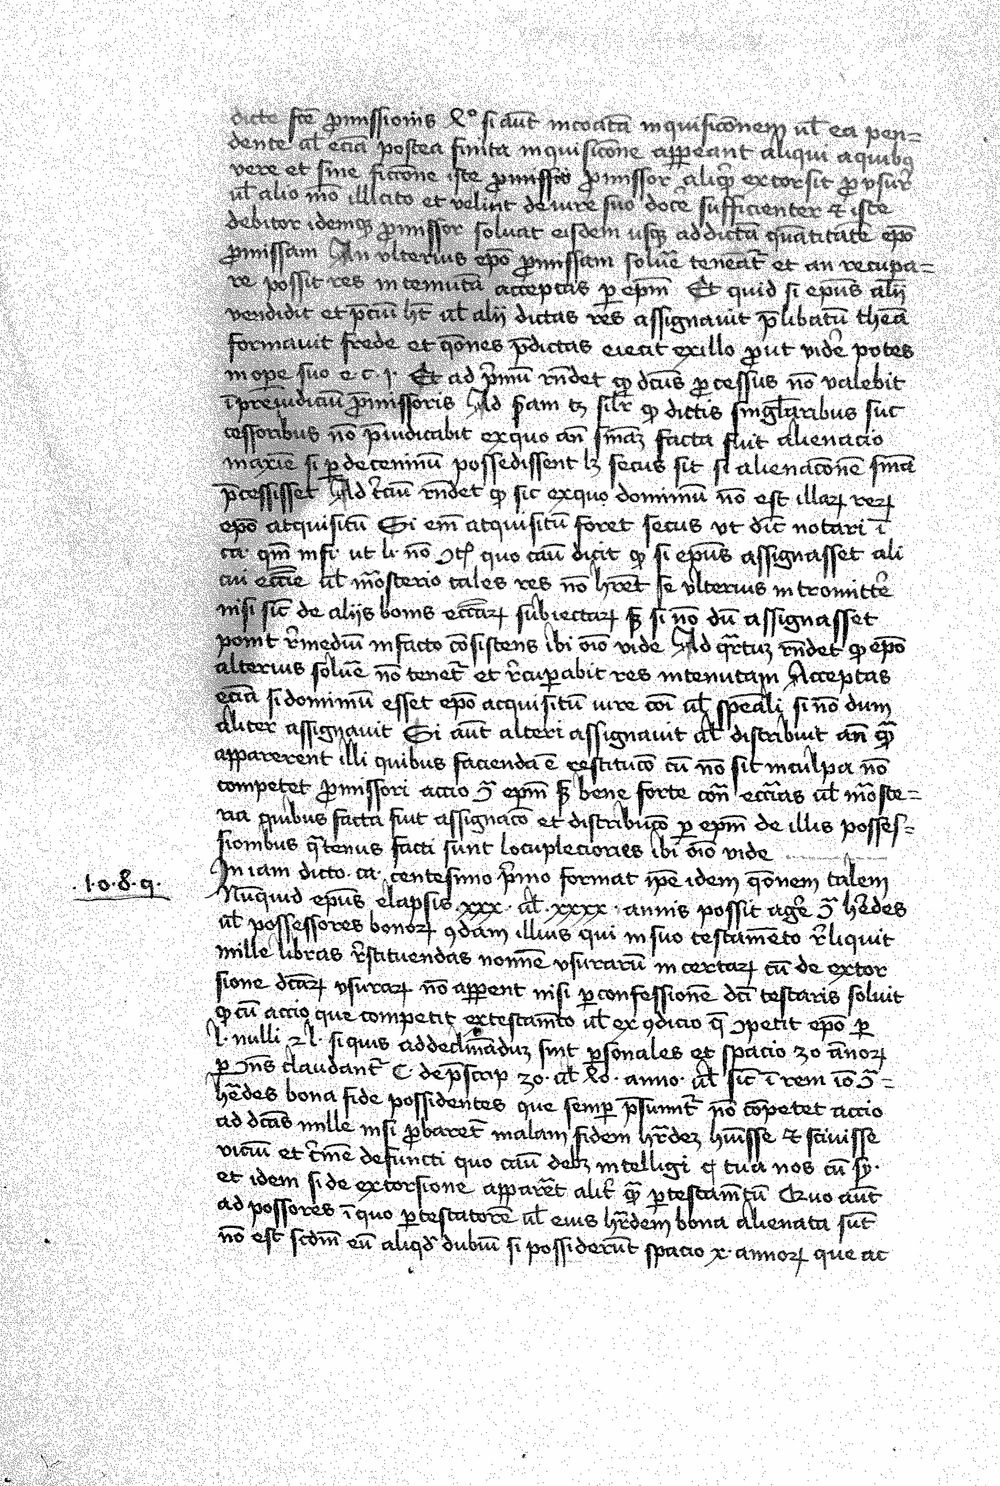 dicte fc̄e ꝓmissionis Xº si aūt incoatā inquisicōnem ul̄ ea pen=
dente ul̄ eciā postea finita inquisicōne appeant aliqui a quibꝯ
vere et sine ficcōne iste ꝓmissor aliqd̄ extorsit ꝓ vsur̄
ul̄ alio mō illicito et velint de iure suo docē sufficienter ⁊ iste
debitor idemqꝫ ꝓmissor soluat eisdem usqꝫ ad dictā quātitatē ep̄o
ꝓmissam An vlterius ep̄o ꝓmissam soluē teneat̄ et an recupa=
re possit res in tenutā acceptas ꝑ ep̄m Et quid si ep̄us alij
vendidit et p̄ciū hēt ul̄ alij dictas res assignavit p̄libatū theā
formavit frede et q̄ones p̄dictas eiecit ex illo ꝓut vidē potes
in ope suo e c i Et ad p̄mū rn̄det ꝙ dc̄us ꝓcessus nō valebit
ī preiudiciū ꝓmissoris Ad sc̄am tꝫ silr̄ ꝙ dictis singl̄aribus suc
cessoribus nō p̄iudicabit ex quo an̄ sn̄iaꝫ facta fuit alienacio
maxīe si ꝑ decenniū possedissent lꝫ secus sit si alienacōnē sn̄ia
p̄cessisset Ad t̄ciū rn̄det ꝙ sic ex quo dominiū nō est illaꝝ reꝝ
ep̄o atquisitū Si em̄ atquisitū foret secus vt dic̄ notari ī
ca· qm̄ insi· ut li· nō ꝯt̄ quo cāu dicit ꝙ si ep̄us assignasset ali
cui ecc̄ie ul̄ mōsterio tales res nō hr̄et se vlterius intromittē
nisi sic̄ de alijs bonis ecc̄iaꝝ subiectaꝝ sꝫ si nō dū assignasset
ponit r̄mediū in facto cōsistens ibi oīo vide Ad qr̄tuꝫ rn̄det ꝙ ep̄o
alterius soluē nō tenet̄ et r̄cuꝑabit res in tenutam Acceptas
eciā si dominiū esset ep̄o acquisitū iure cōi ul̄ speāli si nō dum
aliter assignavit Si aūt alteri assignavit ul̄ distribuit an̄ qͣ
apparerent illi quibus facienda ē restitucō cū nō sit in culpa nō
competet ꝓmissori accio ꝯ̄ ep̄m sꝫ bene forte con̄ ecc̄ias ul̄ mōste=
ria quibus facta fuit assignacō et distribucō ꝑ ep̄m de illis posses=
sionibus qͣtenus facti sunt locupleciores ibi oīo vide
·1·0·8·9·
In iam dicto ca· centesimo p̄mo format ip̄e idem q̄onem talem
Nūquid ep̄us elapsis xxx· ul̄ xxxx annis possit agē ꝯ̄ hēdes
ul̄ possessores bonoꝝ ꝯdam illius qui in suo testamēto r̄liquit
mille libras r̄stituendas noīne vsurarū in certaꝝ cū de extor
sione dc̄aꝝ vsuraꝝ nō appent nisi ꝑ confessionē dc̄i testaris soluit
ꝙ cū accio que competit ex testamēto ul̄ ex ꝯdicio q̄ ꝯpetit ep̄o ꝑ
l· nulli ⁊ l· si quis ad declināduꝫ sint ꝑsonales et spacio 30 ānoꝝ
hēdes bona fide possidentes que semꝑ p̄sumit̄ nō cōpetet accio
ad dc̄as mille nisi ꝓbaret̄ malam fidem hr̄deꝫ hūisse ⁊ scivisse
viciū et c̄mē defuncti quo cāu debꝫ intelligi ꝙ tua nos cū sy·
et idem si de extorsione apparēt alit̄ qͣ ꝑ testamētū Quo aūt
ad possores ī quo ꝑ testatorē ul̄ eius hr̄dem bona alienata sūt
nō est scdm̄ eū aliqd̄ dubiū si possiderūt spacio x· annoꝝ que ac